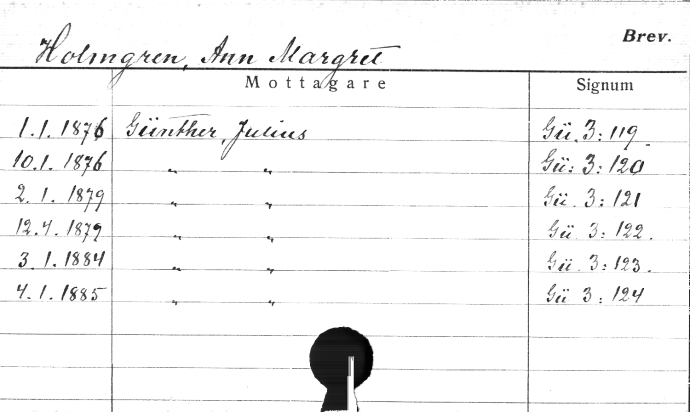 Brev.
Holmgren, Ann Margret
Mottagare Signum
1.1.1876 Günther, Julius Gü. 3:119.
10.1.1876 „ „ Gü: 3:120
2.1.1879 „ „ Gü. 3:121
12.4.1879 „ „ Gü 3:122.
3.1.1884 „ „ Gü. 3:123.
4.1.1885 „ „ Gü 3:124